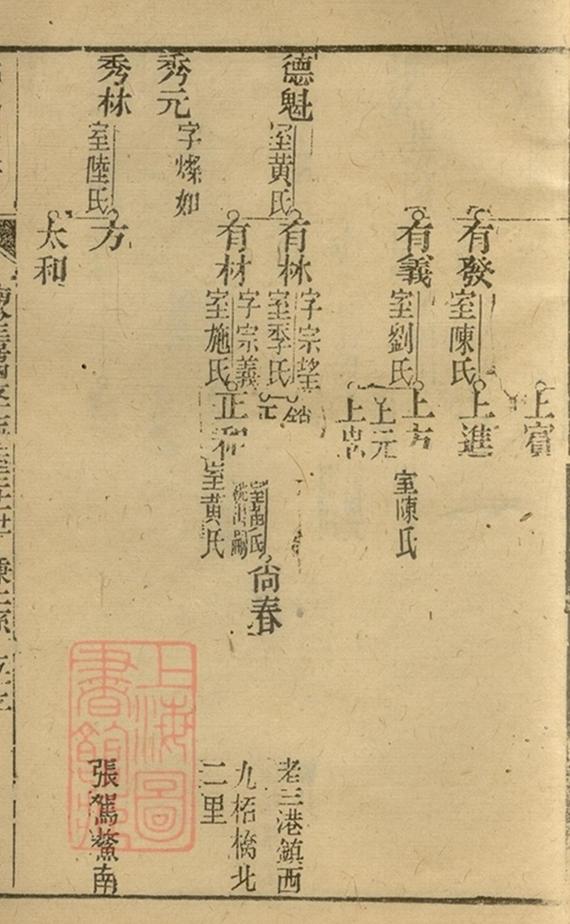 上賓
有發
室陳氏
上進
有義
室劉氏
上方
室陳氏
上元
上忠
德魁
室黃氏
有林
字宗望
室季氏
尚春
有材
字宗義
室施氏
正和
室黃氏
老三港鎮西
九柘橋北
二里
秀元
字燦如
秀林
室陸氏
方
太和
張駕鰲南
上海圖
書館藏